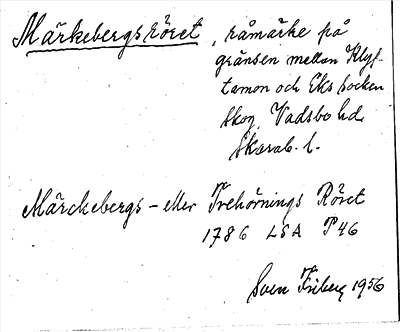 Märkebergsröret, råmärke på
gränsen mellan Klyf-
tamon och Eks socken
skog, Vadsbo hd.
Skarab. l.
Märckebergs- eller Trehörnings Röret
1786 LSA P46
Sven Friberg 1956